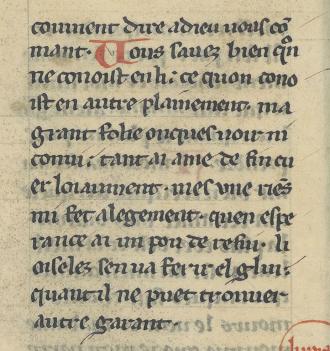 coument dire adieu uous cō
mant. Uous sauez bien qͣn
ne conoist en li: ce quon cono
ist en autre plainement. ma
grant folie onques uoir ni
conui: tant ai ame de fin cu
er loiaument. mes vne riēs
mi fet alegement. quen espe
rance ai un pou de refui. li
oiselez sen ua ferir el glui.
quant il ne puet trouuer
autre garant.